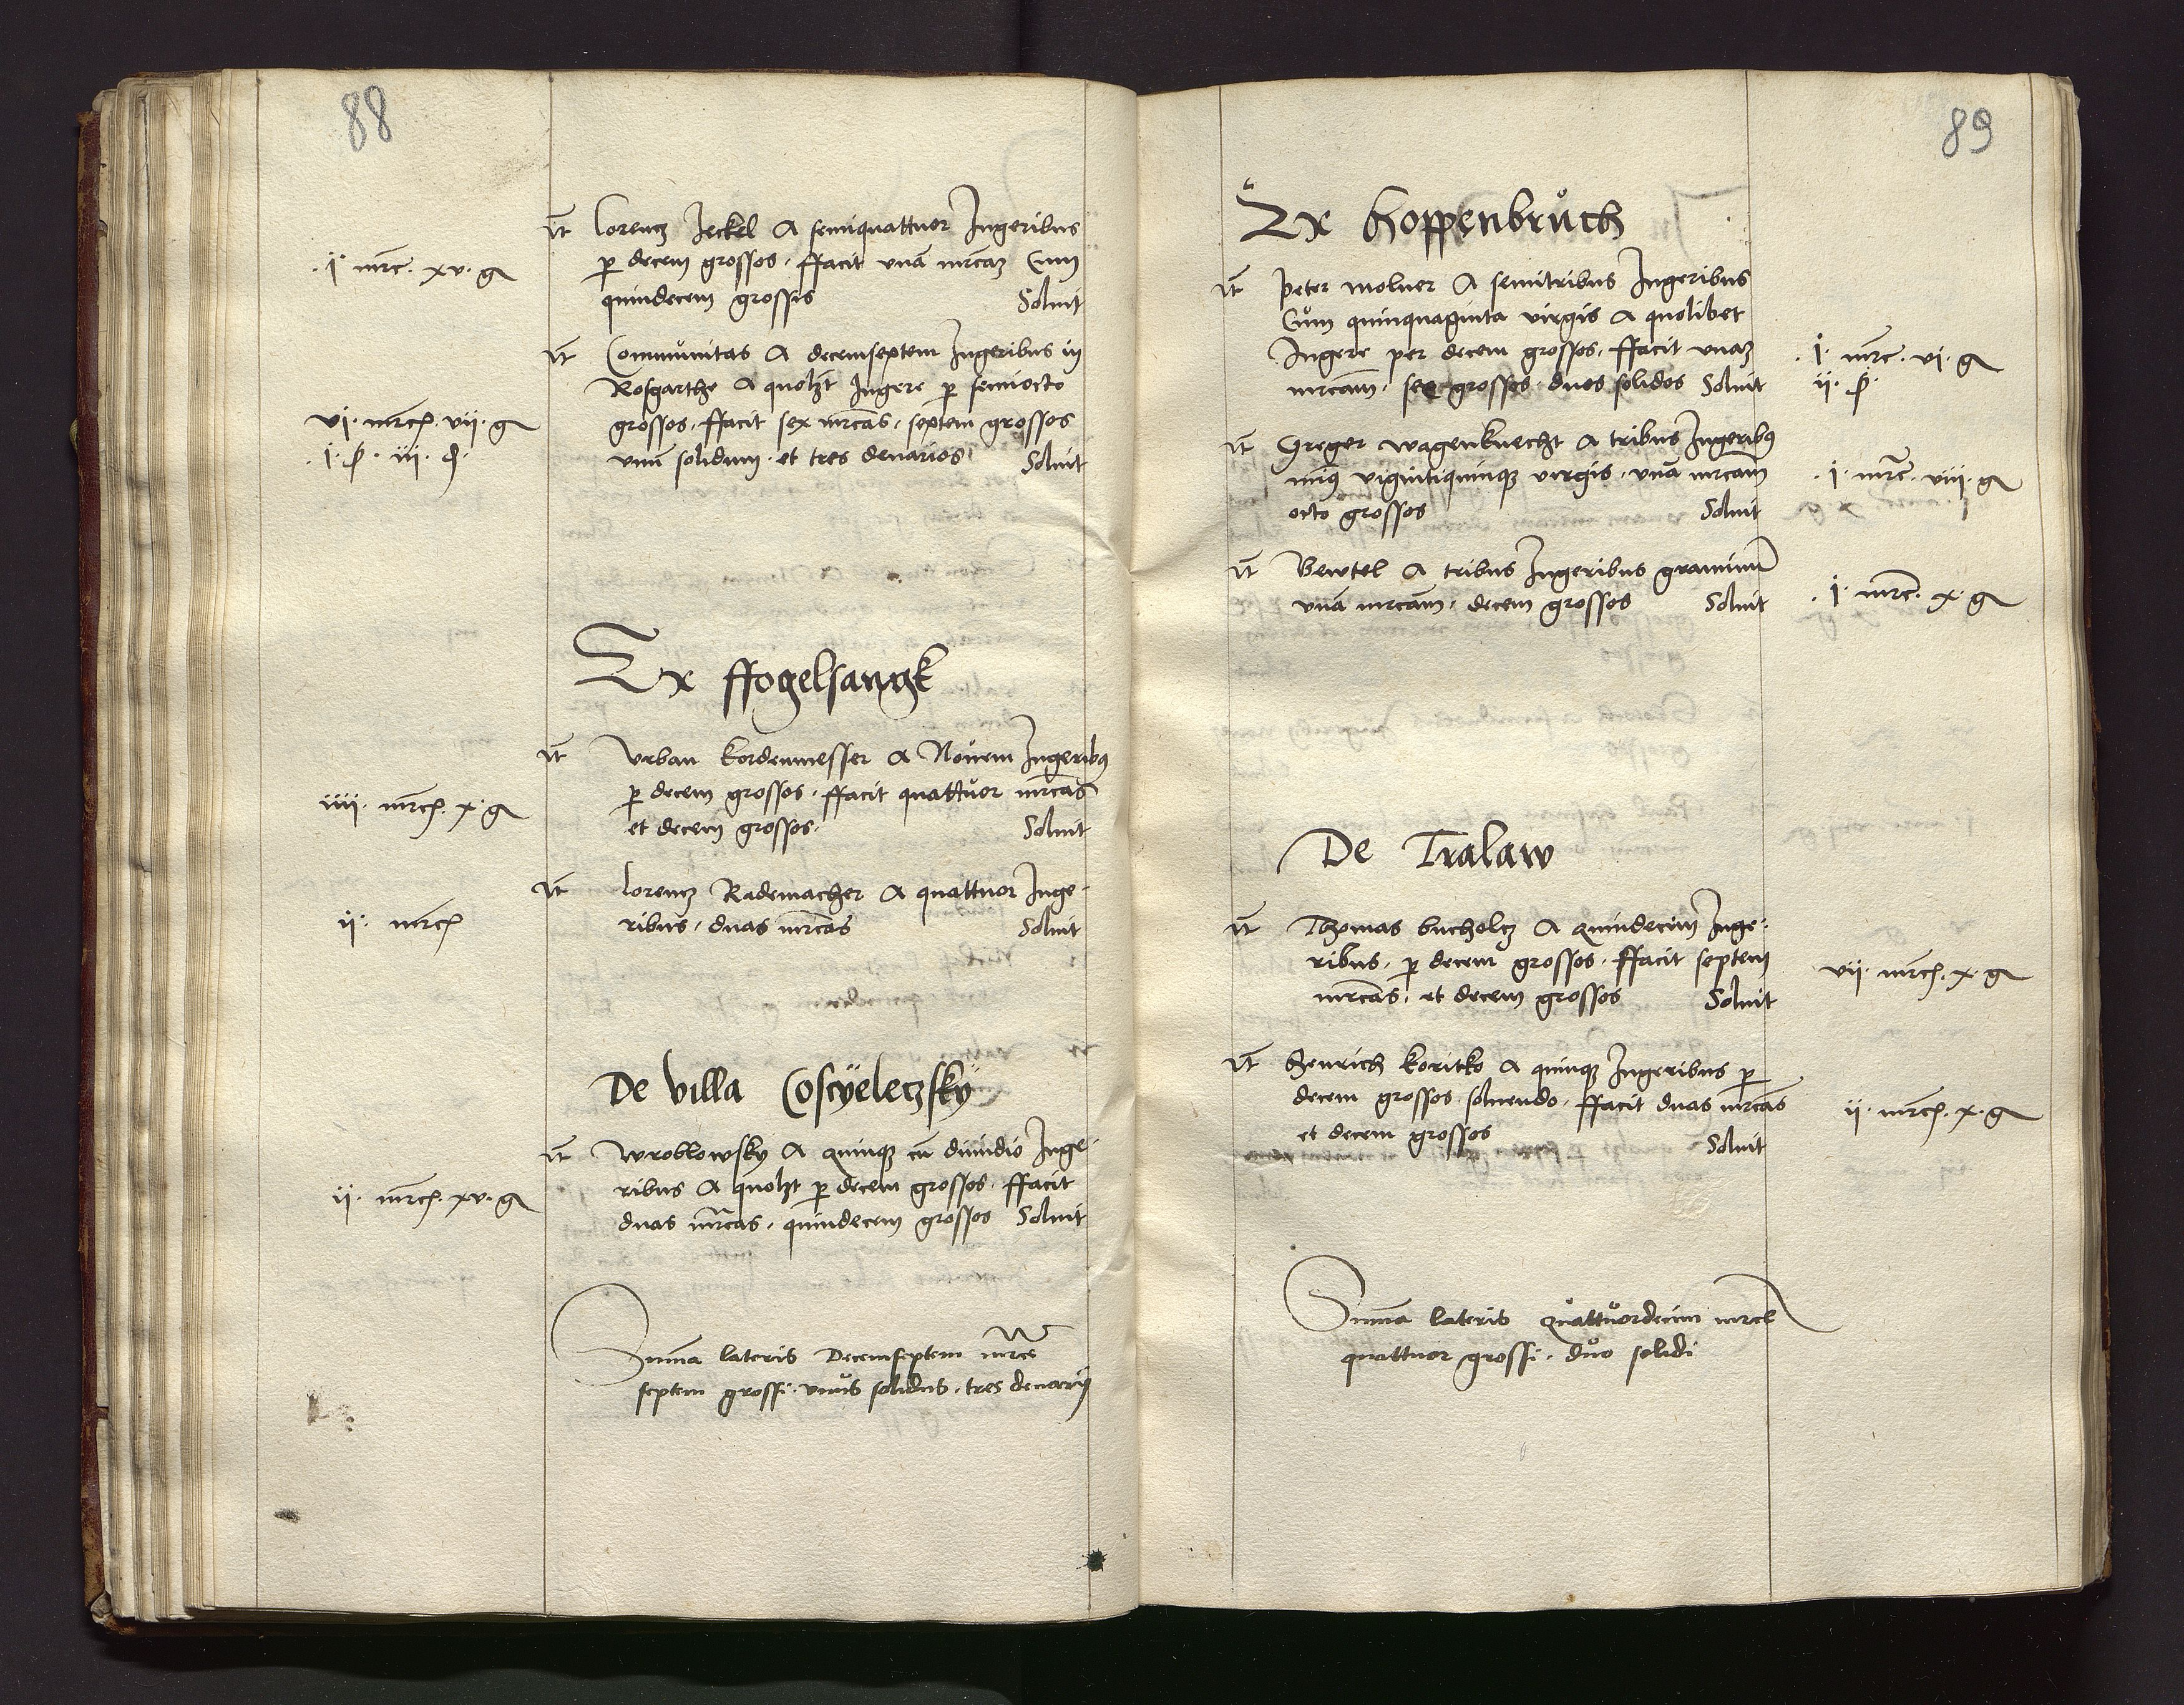 88
Jt Lorencz Jeckel A semiquattuor Jugeribus
p decem grossos. ffacit vna mrcaz Cum
.i. mrc. xv. g
quindecem grossis Soluit
Jt Communitas A decemseptem Jugeribus in
Rosgarthe A quolzt Jugere p semiocto
vi. mrc. vii. g
grossos. ffacit sex mrcas. septem grossos
.i. ß. iii. d.
vnu solidum. et tres denarios Soluit
Ex ffogelsangk
Jt Vrban kordenmesser A Nouem Jugeribq
p decem grossos. ffacit quattuor mrcas
iiii. mrc. x. g
et decem grossos. Soluit
Jt Lorencz Rademacher A quattuor Juge-
ii. mrc
ribus. duas mrcas Soluit
De villa Coscÿeleczskÿ
Jt Wroblowsky A quinqz cu dimidio Juge-
ribus A quolzt p decem grossos. ffacit
ii. mrc. xv. g
duas mrcas. quindecem grossos Soluit
Suma lateris Decemseptem mrce
septem grossi. vnus solidus. tres denarij
89
Ex Hoppenbruch
Jt Peter molner A semitribus Jugeribus
Cum quinquaginta virgis A quolibet
Jugere per decem grossos. ffacit vnaz
.i. mrc. vi. g
mrcam. sex grossos. duos solidos Soluit
ii. ß.
Jt Greger wagenknecht A tribus Jugeribq
minq vigintiquinqz virgis. vna mrcam
.i. mrc. viii. g
octo grossos Soluit
Jt Bewtel A tribus Jugeribus graminu
vna mrcam. decem grossos Soluit
.i. mrc. x. g
De Tralaw
Jt Thomas bucholcz A quindecim Juge-
ribus. p decem grossos. ffacit septem
vii. mrc. x. g
mrcas. et decem grossos Soluit
Jt Henrich koritko A quinqz Jugeribus p
decem grossos soluendo. ffacit duas mrcas
ii. mrc. x. g
et decem grossos Soluit
Suma lateris quattuordecim mrce
quattuor grossi. duo solidi